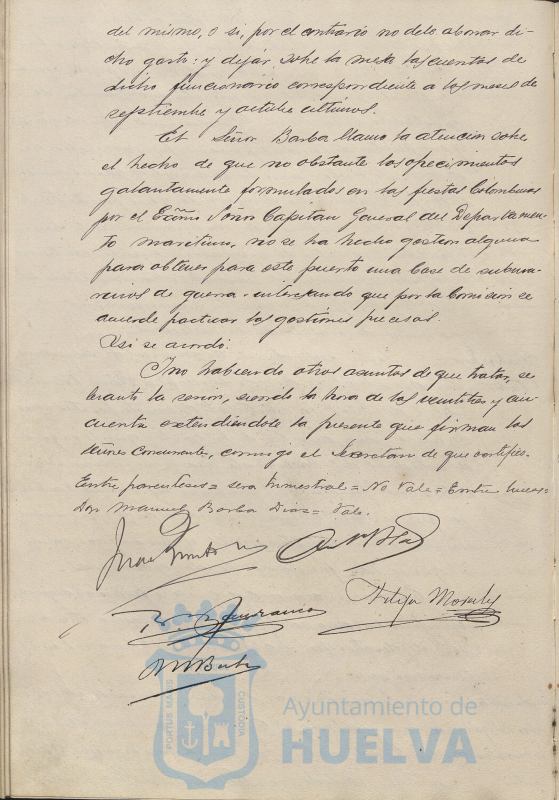 del mismo, o si, por el contrario no debe abonar di-
cho gasto: y dejar sobre la mesa las cuentas de
dicho funcionario correspondiente a los meses de
septiembre y octubre últimos.
El Señor Barba llamo la atención sobre
el hecho de que no obstante los ofrecimientos
galantamente formulados en las fiestas Colombinas
por el Excmo Señor Capitan General del Departamen-
to maritimo, no se ha hecho gestion alguna
para obtener para este puerto una base de subma-
rinos de guerra, interesando que por la Comision se
acuerde practicar las gestiones precisas.
Asi se acordó.
Y no habiendo otros asuntos de que tratar, se
levantó la sesion, siendo la hora de las veintitres y cin-
cuenta extendiendose la presente que firman los
Señores concurrentes, conmigo el Secretario de que certifico.
Entre parentesis = sera trimestral = No Vale = Entre lineas =
Don Manuel Barba Diaz = Vale.
Felipe Morales
M Barba
PORTUS MARIS CUSTODIA
Ayuntamiento de
HUELVA